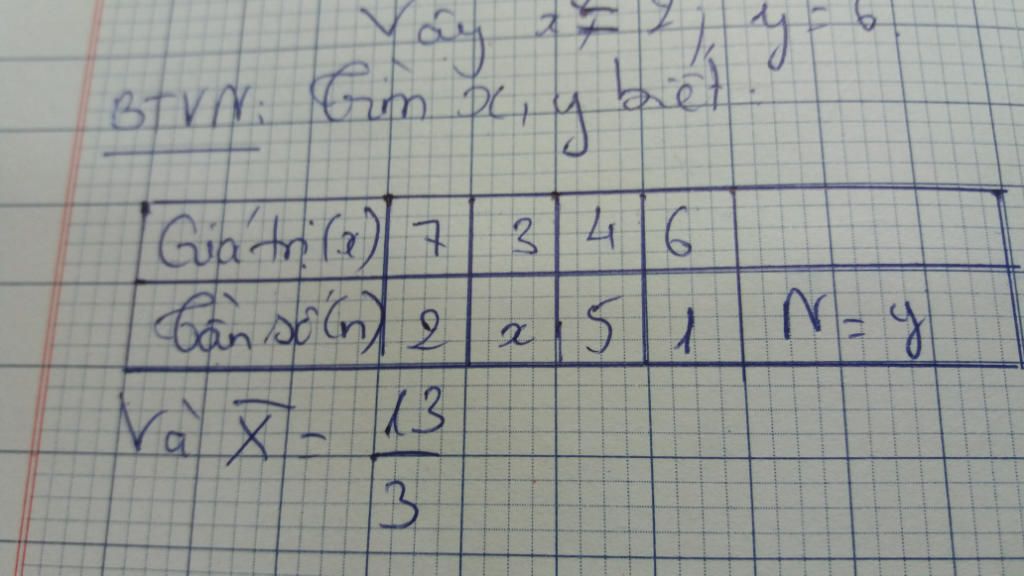 Vậy x = 2, y = 6
BTVN: Tìm x, y biết.
Giá trị (x) 7 3 4 6
Tần số (n) 2 x 5 1 N = y
Và X̅ = 13/3